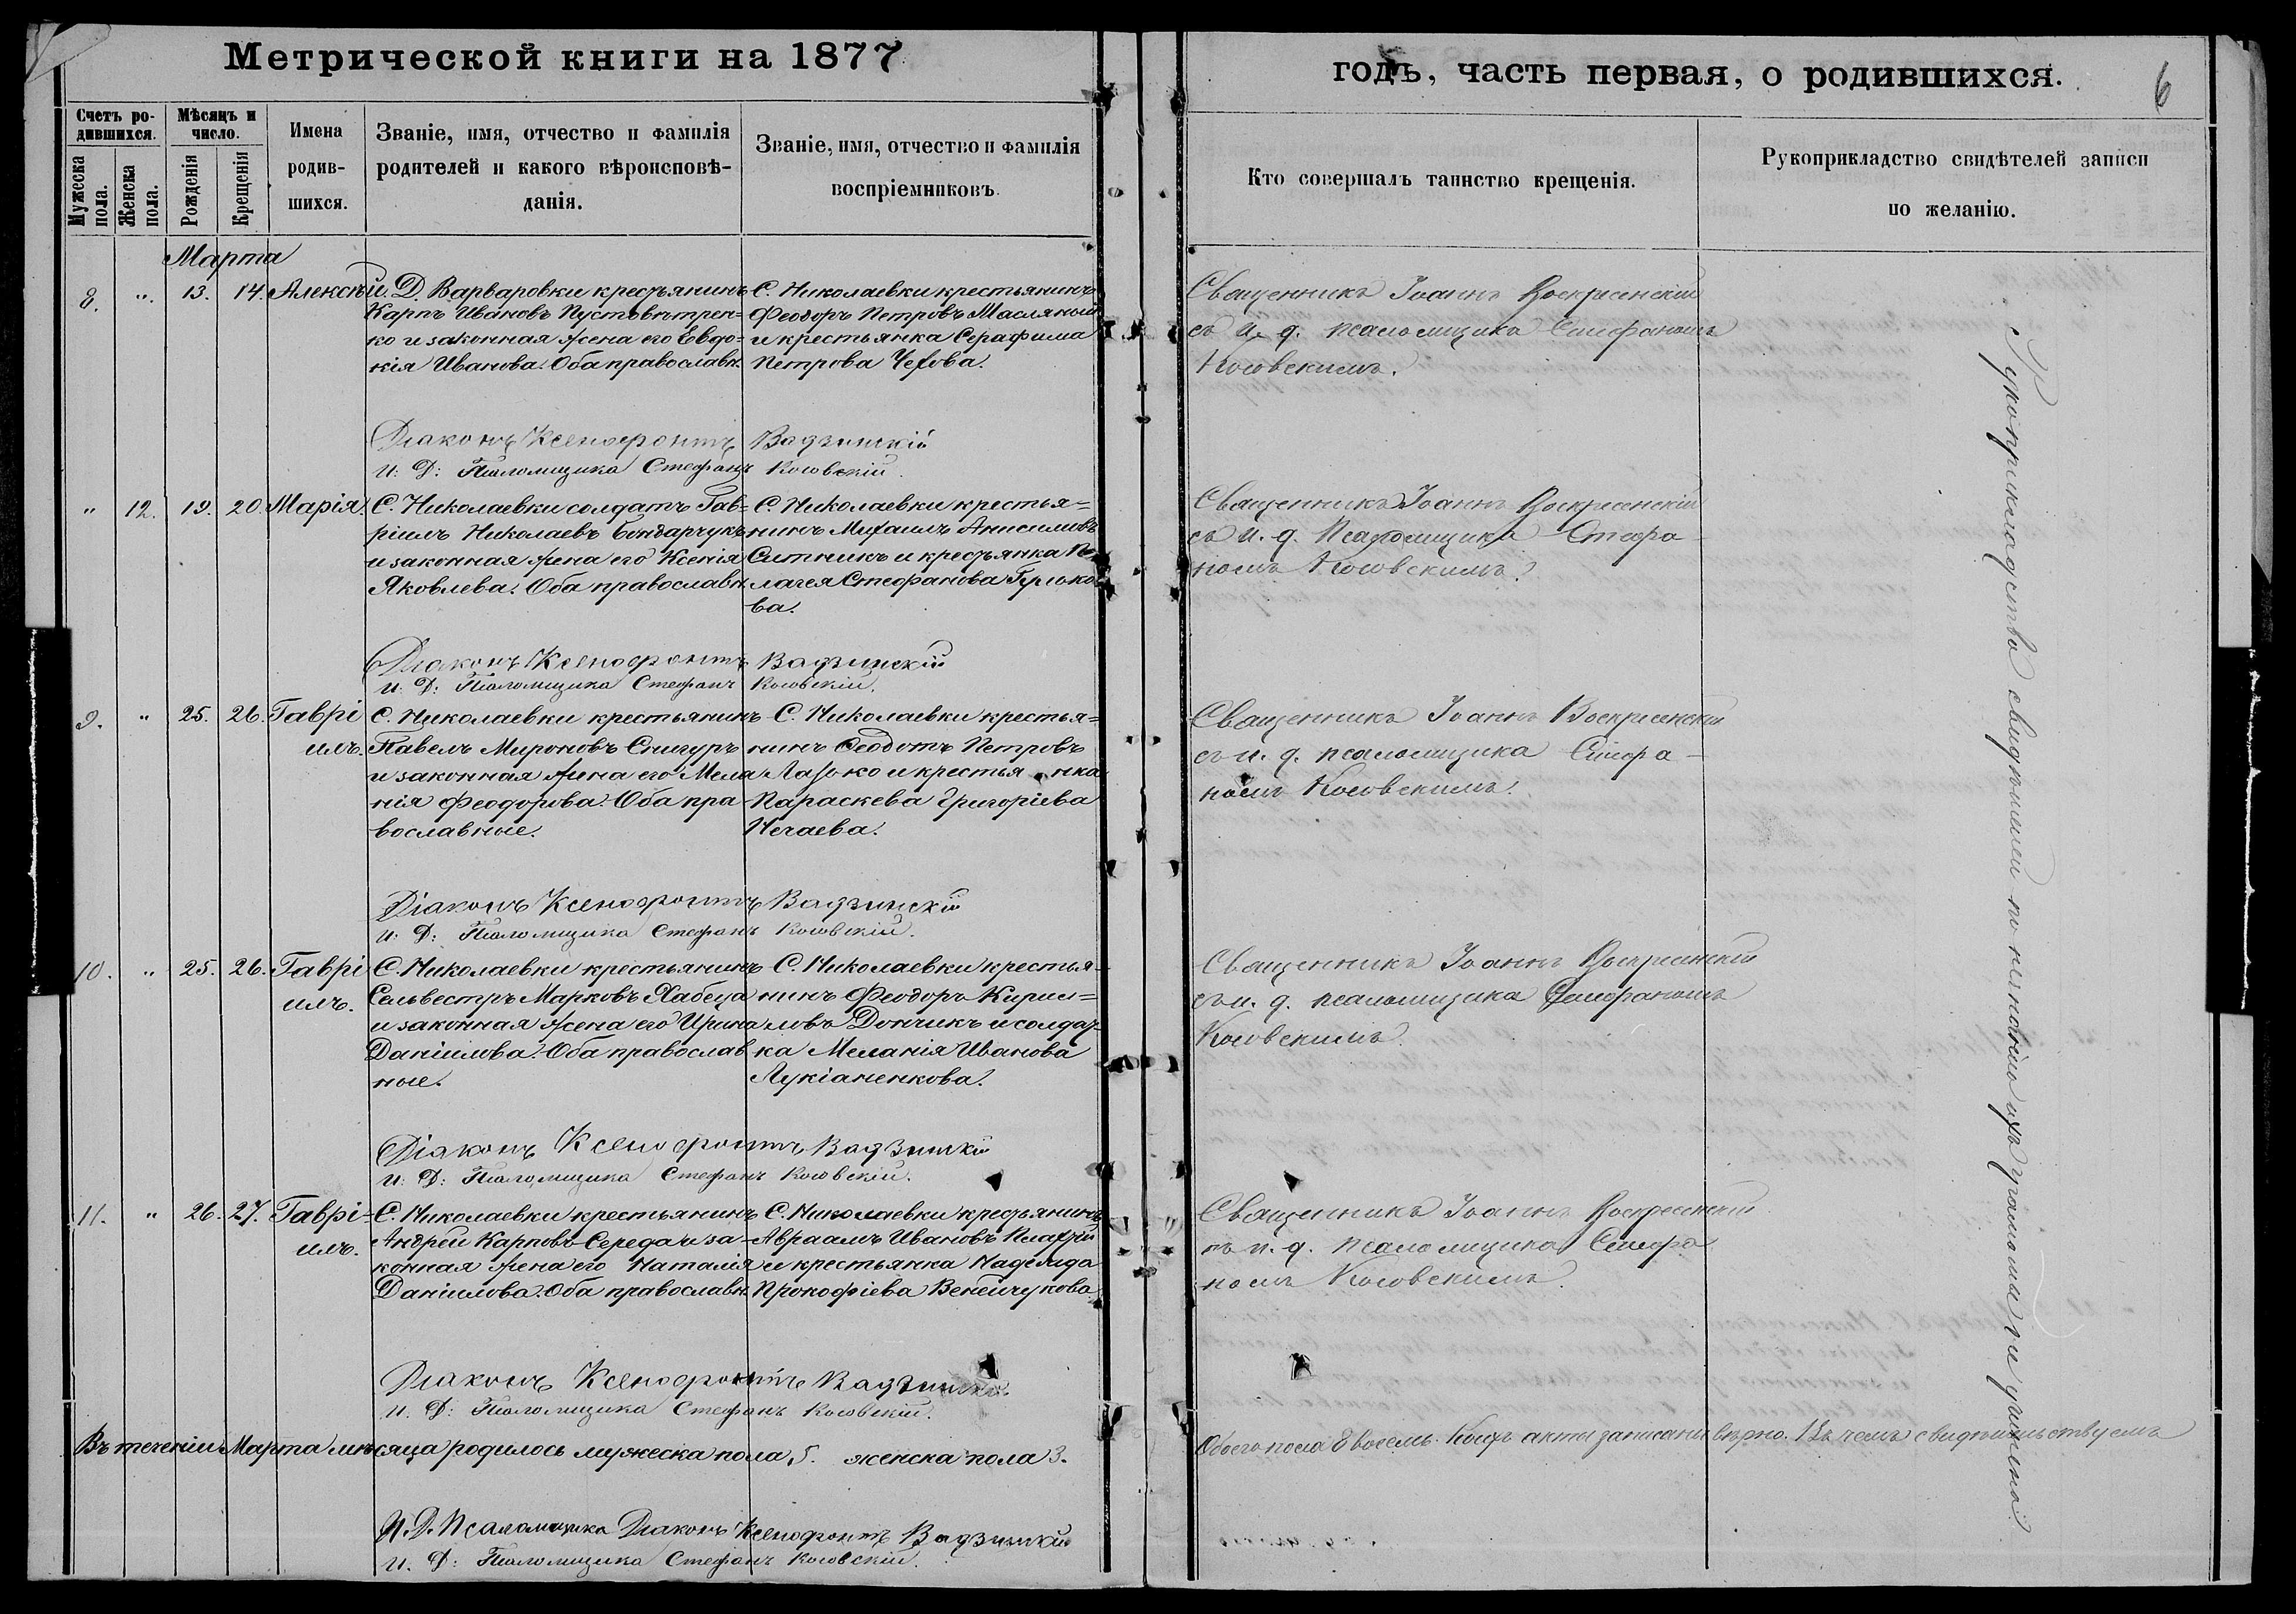 Метрической книги на 1877
годъ, часть первая, о родившихся.
6
Счетъ ро-
дившихся.
Мужеска
пола.
Женска
пола.
Мѣсяцъ и
число.
Рожденія
Крещенія
Имена
родив-
шихся.
Званіе, имя, отчество и фамилія
родителей и какого вѣроисповѣ-
данія.
Званіе, имя, отчество и фамилія
воспріемниковъ.
Кто совершалъ таинство крещенія.
Рукоприкладство свидѣтелей записи
по желанію.
Марта
8. " 13. 14. Алексѣй.
Д. Варваровки крестьянинъ
Карпъ Ивановъ Пустовѣтрен-
ко и законная жена его Евдо-
кія Иванова. Оба православн.
С. Николаевки крестьянинъ
Феодоръ Петровъ Масляный
и крестьянка Серафима
Петрова Чехова.
Священникъ Іоаннъ Воскресенскій
съ и. д. псаломщика Стефаномъ
Косовскимъ.
Діаконъ Ксенофонтъ Вадзинскій
И. Д: Псаломщика Стефанъ Косовскій.
" 12. 19. 20. Марія.
С. Николаевки солдатъ Гав-
ріилъ Николаевъ Бондарчукъ
и законная жена его Ксенія
Яковлева. Оба православн.
С. Николаевки крестья=
нинъ Михаилъ Анисимовъ
Ситникъ и крестьянка Пе-
лагея Стефанова Гулько-
ва.
Священникъ Іоаннъ Воскресенскій
съ и. д. Псаломщика Стефа-
номъ Косовскимъ.
Діаконъ Ксенофонтъ Вадзинскій
И. Д: Псаломщика Стефанъ Косовскій.
9. " 25. 26. Гаврі
илъ.
С. Николаевки крестьянинъ
Павелъ Мироновъ Снигуръ
и законная жена его Мела
нія Феодорова. Оба пра-
вославные.
С. Николаевки крестья=
нинъ Феодотъ Петровъ
Лазько и крестьянка
Параскева Григоріева
Нечаева.
Священникъ Іоаннъ Воскресенскій
съ и. д. псаломщика Стефа-
номъ Косовскимъ.
Діаконъ Ксенофонтъ Вадзинскій
И: Д: Псаломщика Стефанъ Косовскій.
10. " 25. 26. Гаврі
илъ.
С. Николаевки крестьянинъ
Сельвестръ Марковъ Хабеца
и законная жена его Ирина
Даніилова. Оба православ
ные.
С. Николаевки крестья-
нинъ Феодоръ Кирил=
ловъ Дончикъ и солдат-
ка Меланія Иванова
Лукіаненкова.
Священникъ Іоаннъ Воскресенскій
съ и. д. псаломщика Стефаномъ
Косовскимъ.
Діаконъ Ксенофонтъ Вадзинскій
И: Д: Псаломщика Стефанъ Косовскій.
11. " 26. 27. Гаврі-
илъ.
С. Николаевки крестьянинъ
Андрей Карповъ Середа и за-
конная жена его Наталія
Даніилова. Оба православн.
С. Николаевки крестьянинъ
Авраамъ Ивановъ
и крестьянка Надежда
Прокофіева Венгичукова.
Священникъ Іоаннъ Воскресенскій
съ и. д. псаломщика Стефа
номъ Косовскимъ.
Діаконъ Ксенофонтъ Вадзинскій
И. Д: Псаломщика Стефанъ Косовскій.
Въ теченіи Марта мѣсяца родилось мужеска пола 5. женска пола 3.
Обоего пола 8 восемь. Коихъ акты записаны вѣрно. Въ чемъ свидѣтельствуемъ
И. Д. Псаломщика Діаконъ Ксенофонтъ Вадзинскій
И. Д: Псаломщика Стефанъ Косовскій.
Рукоприкладства свидѣтелей по незнанію ихъ грамоты не учинено